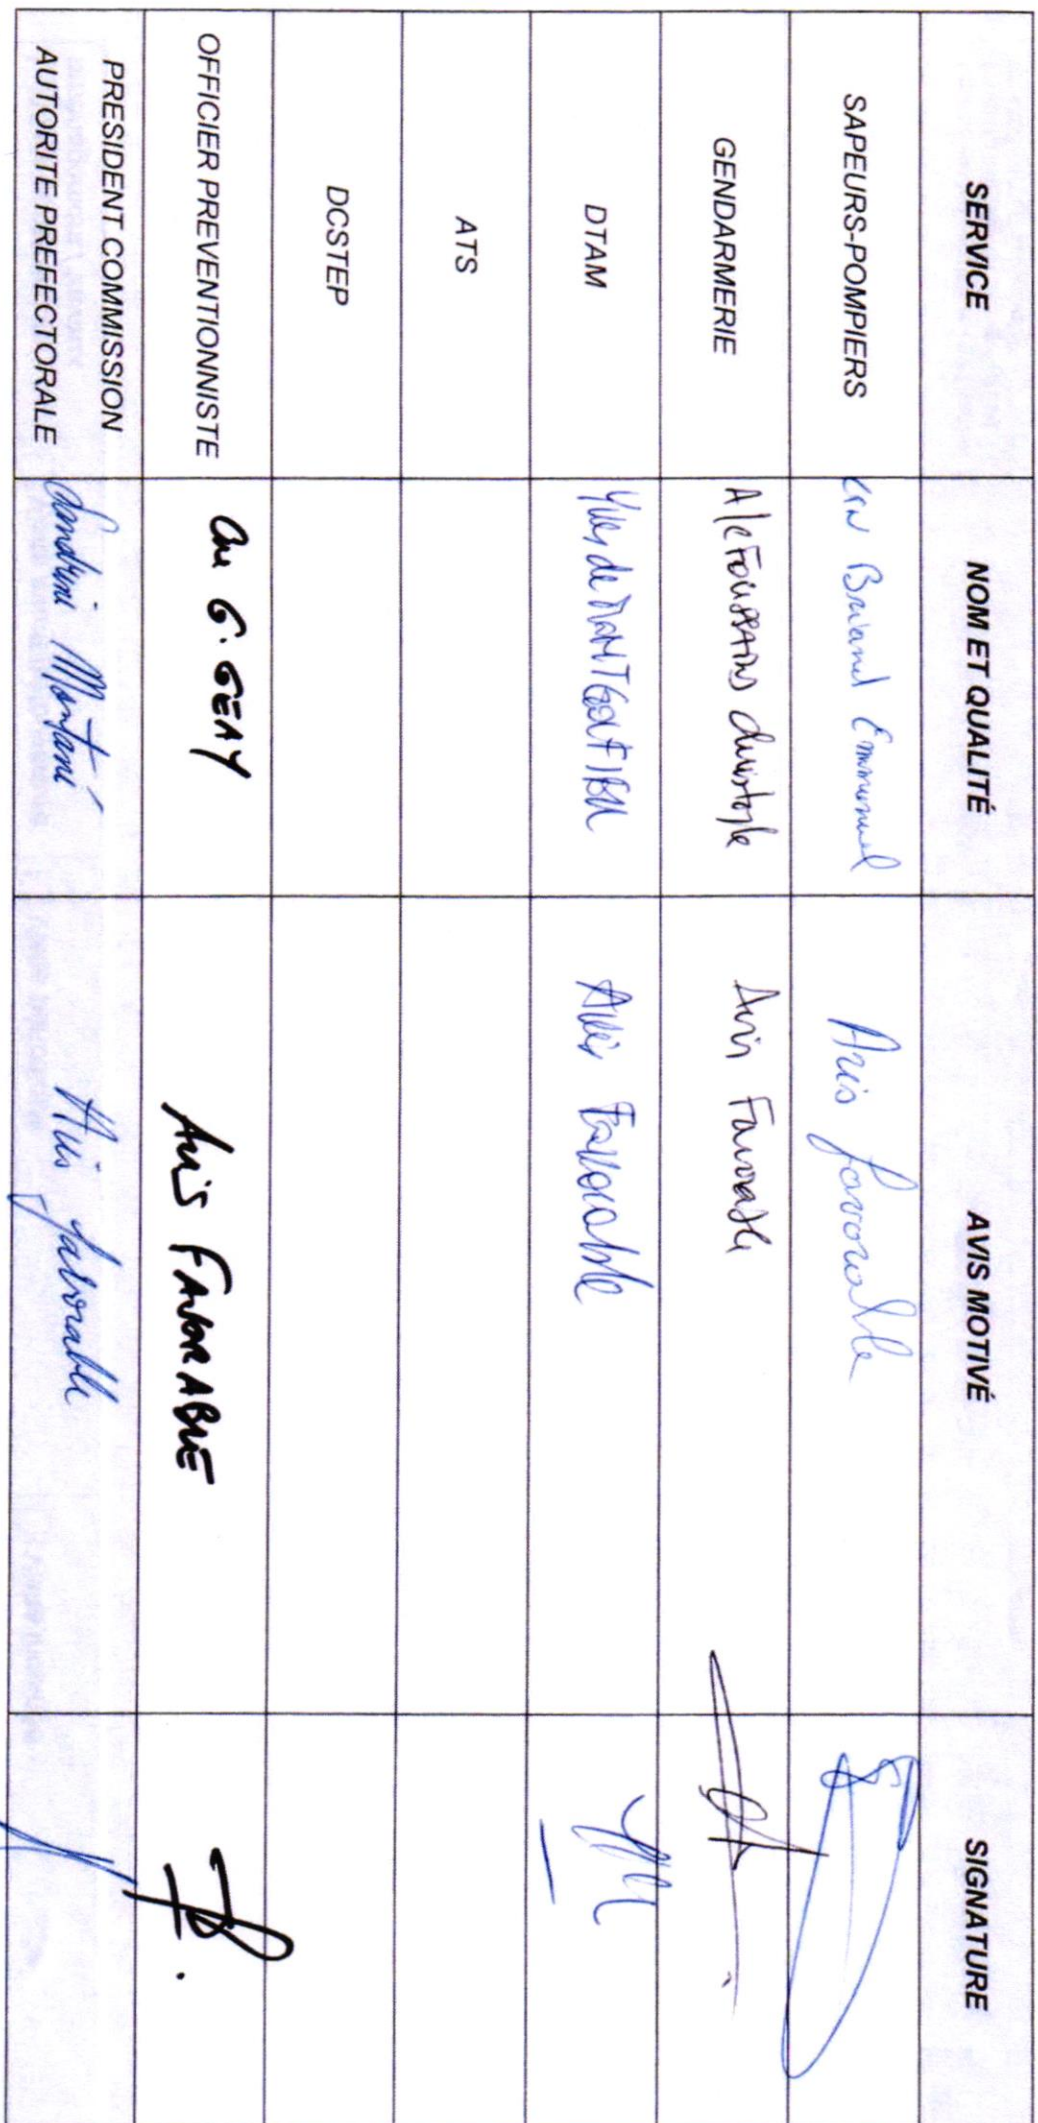 SERVICE NOM ET QUALITÉ AVIS MOTIVÉ SIGNATURE
SAPEURS-POMPIERS Briand Emmanuel Avis favorable
GENDARMERIE Christophe Avis Favorable
DTAM Yves de MONTGOLFIER Avis Favorable
ATS
DCSTEP
OFFICIER PREVENTIONNISTE G. GEAY AVIS FAVORABLE
PRESIDENT COMMISSION
AUTORITE PREFECTORALE Sandrine Montané Avis favorable